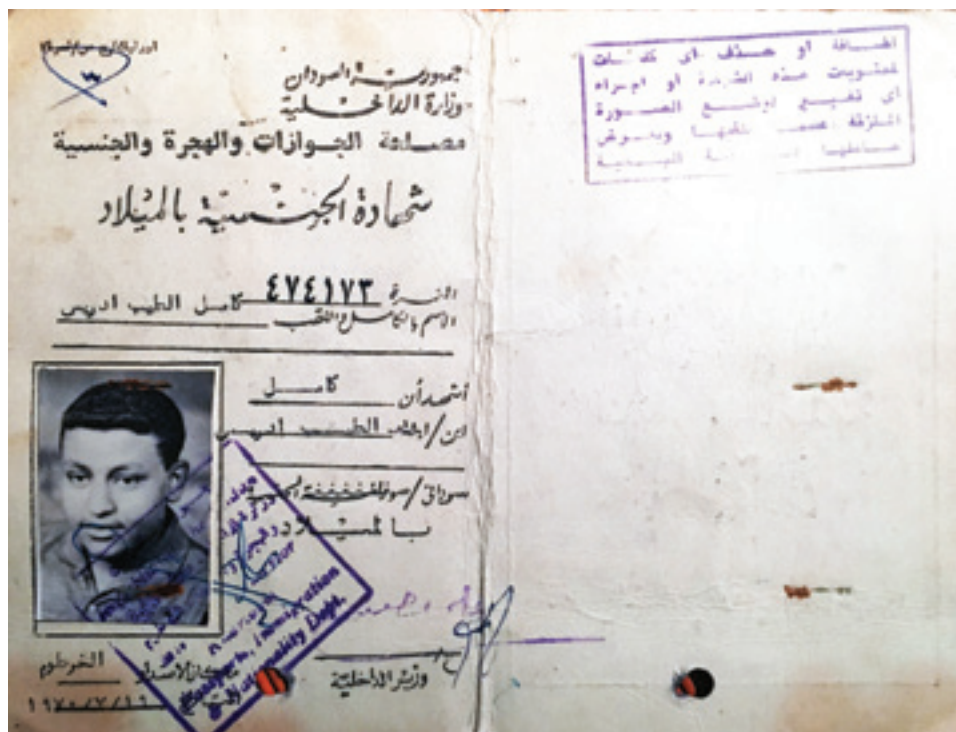 جمهورية السودان
وزارة الداخلية
مصلحة الجوازات والهجرة والجنسية
شهادة الجنسية بالميلاد
النمرة ٤٧٤١٧٣
الاسم بالكامل واللقب كامل الطيب ادريس
أشهد أن كامل
ابن/ابنة الطيب ادريس
سوداني/سودانية الجنسية
بالميلاد
وزير الداخلية
مكان الاصدار الخرطوم
Passports, Immigration
& Nationality Dept.
اضافة او حذف اى كلمات
لمحتويات هذه الشهادة او اجراء
اى تغيير لوضع الصورة
الملزقة